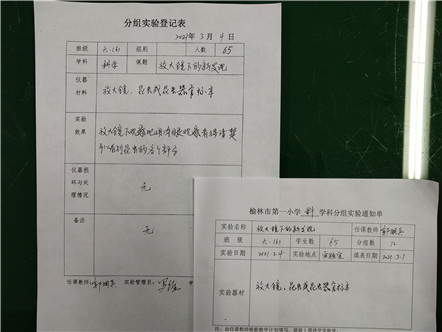 分组实验登记表
2021年 3月 4日
班级 六.(6) 组别 人数 65
学科 科学 课题 放大镜下的新发现
仪器
材料 放大镜、昆虫或昆虫器官标本
实验
效果 放大镜下观察比直接用眼观察看得清楚
可以看到昆虫的各个部分
仪器损
坏与处
理情况 无
备注 无
任课教师: 实验管理员:
榆林市第一小学 科 学科分组实验通知单
实验名称 放大镜下的新发现 任课教师
班级 六.(6) 学生数 65 分组数 12
实验日期 2021.3.4 实验地点 实验室 填表日期 2021.3.1
实验器材 放大镜、昆虫或昆虫器官标本